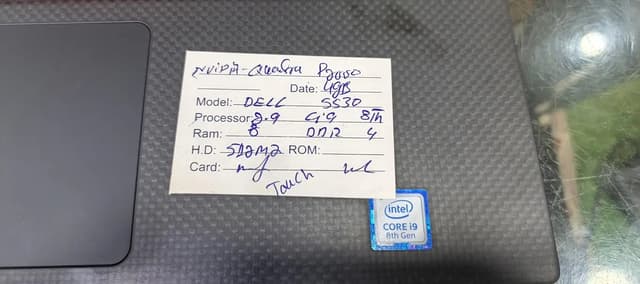 NViDiA-Quadra P2000
Date: 4gB
Model: DELL 5530
Processor: 2.9 Ci9 8th
Ram: 8 DDR 4
H.D: 512M2 ROM:
Card:
Touch
intel
CORE i9
8th Gen